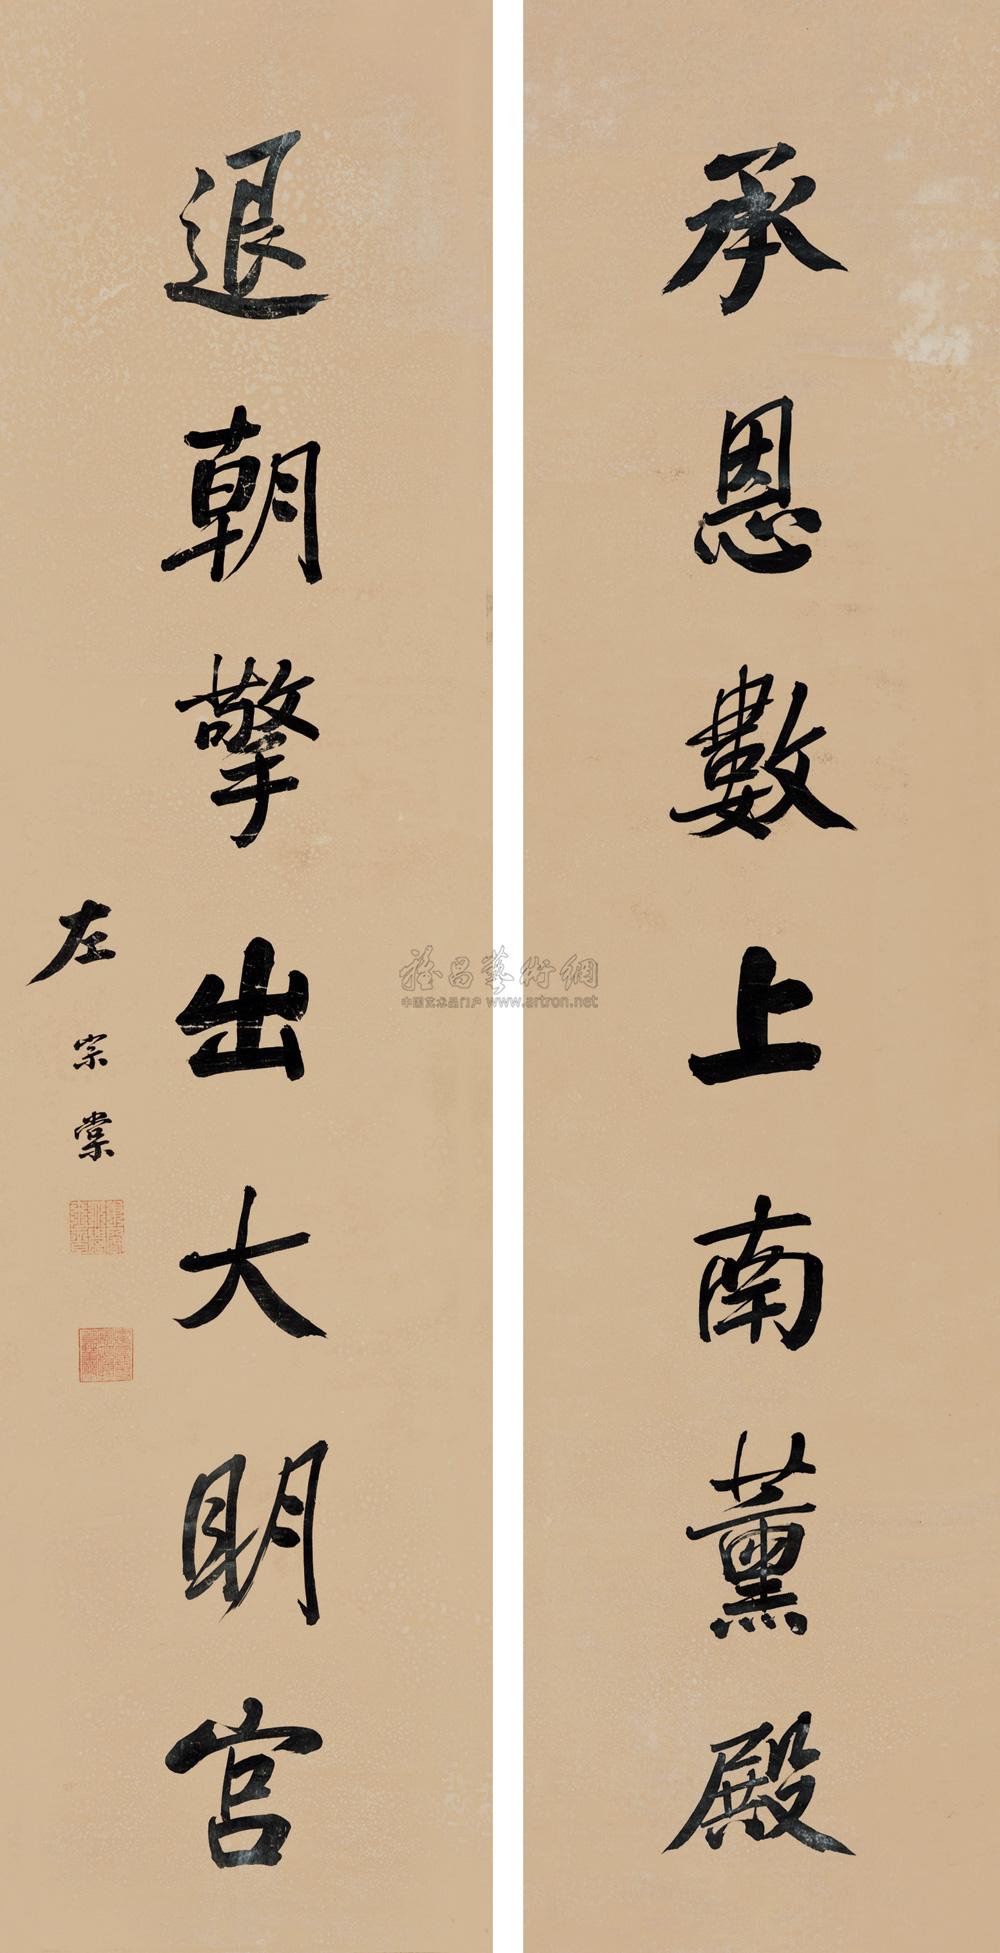 承恩數上南薰殿
退朝擎出大明宫
左宗棠
雅昌藝術網
中国艺术品门户 www.artron.net